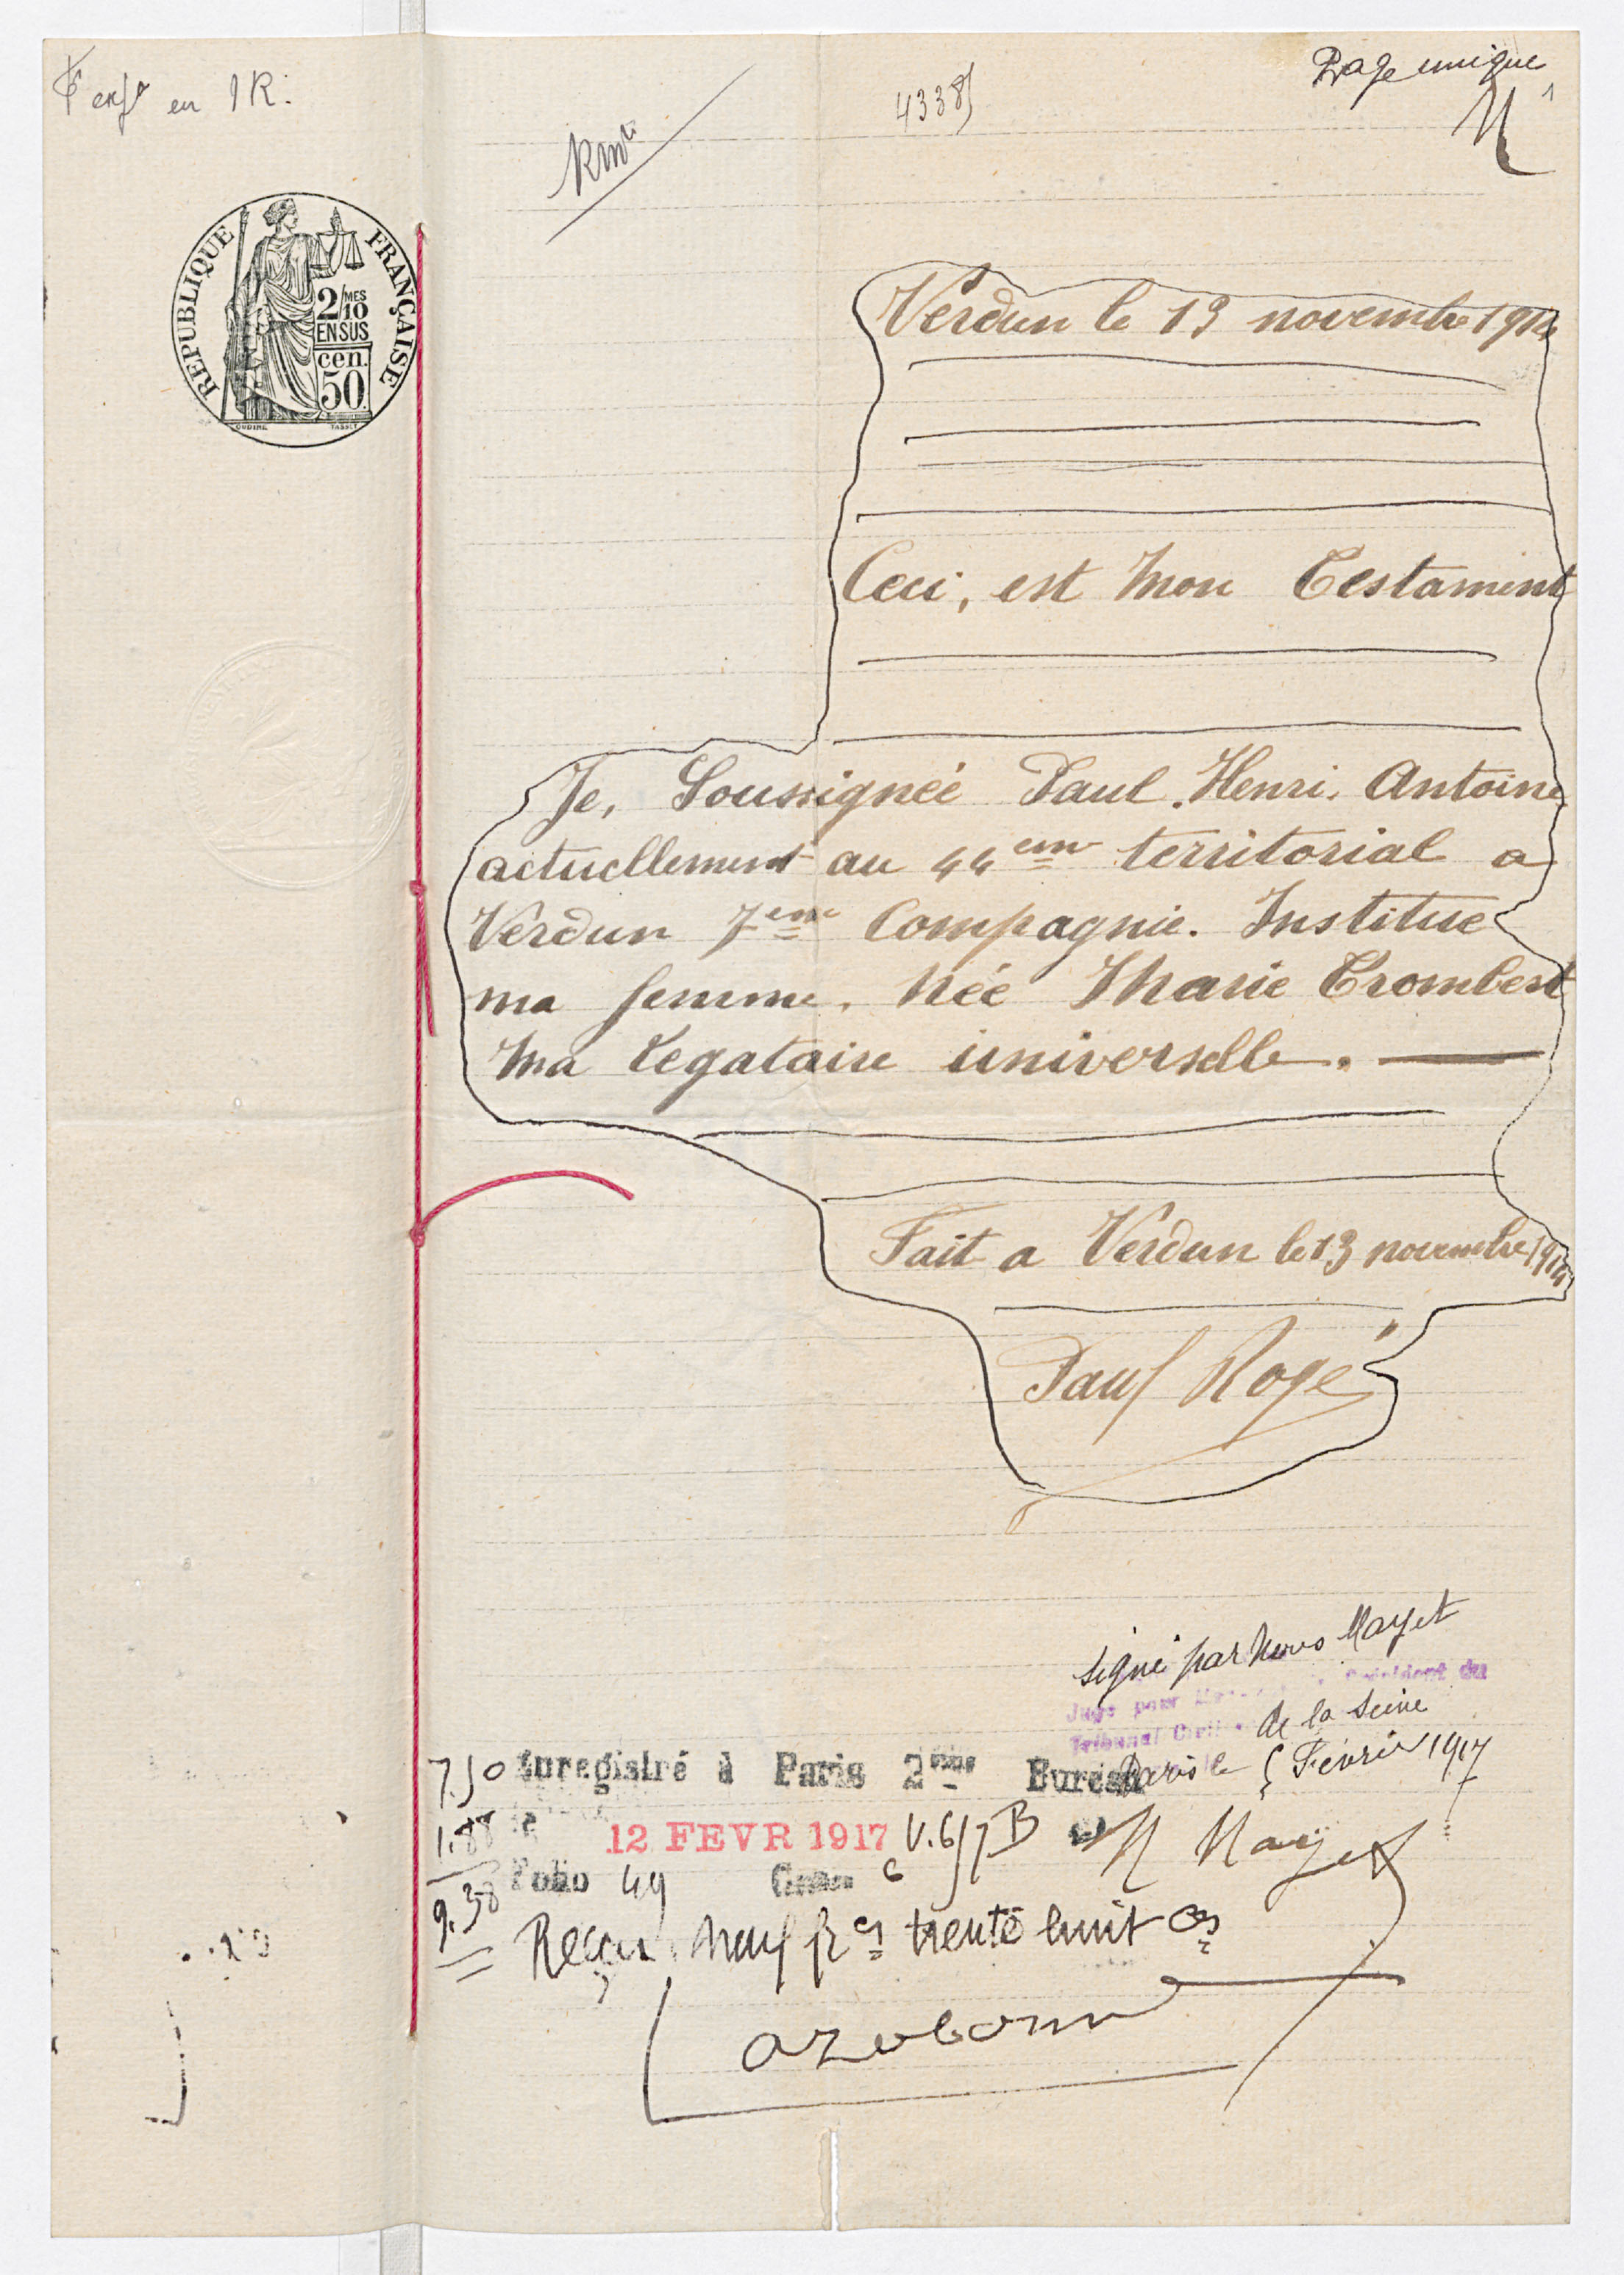 en 1R.
Page unique
RÉPUBLIQUE FRANÇAISE
2/10 MES
EN SUS
cen.
50
OUDINÉ TASSET
Verdun le 13 novembre 1914
Ceci, est Mon Testament
Je, Soussignéé Paul. Henri. Antoine
actuellement au 44eme territorial a
Verdun 7eme Compagnie. Institue
ma femme, Néé Marie Trombert
Ma Legataire universelle.
Fait a Verdun le 13 novembre 1914
Paul Rogé
Signé par Nous Mayet
Juge pour Président du
Tribunal Civil de la Seine
Paris le 5 Février 1917
M Mayet
7.50 Enregistré à Paris 2ème Bureau
1.88 le 12 FEVR 1917 V. 617 B
9.38 Folio 49 Case 6
Reçu neuf frcs trente huit cs